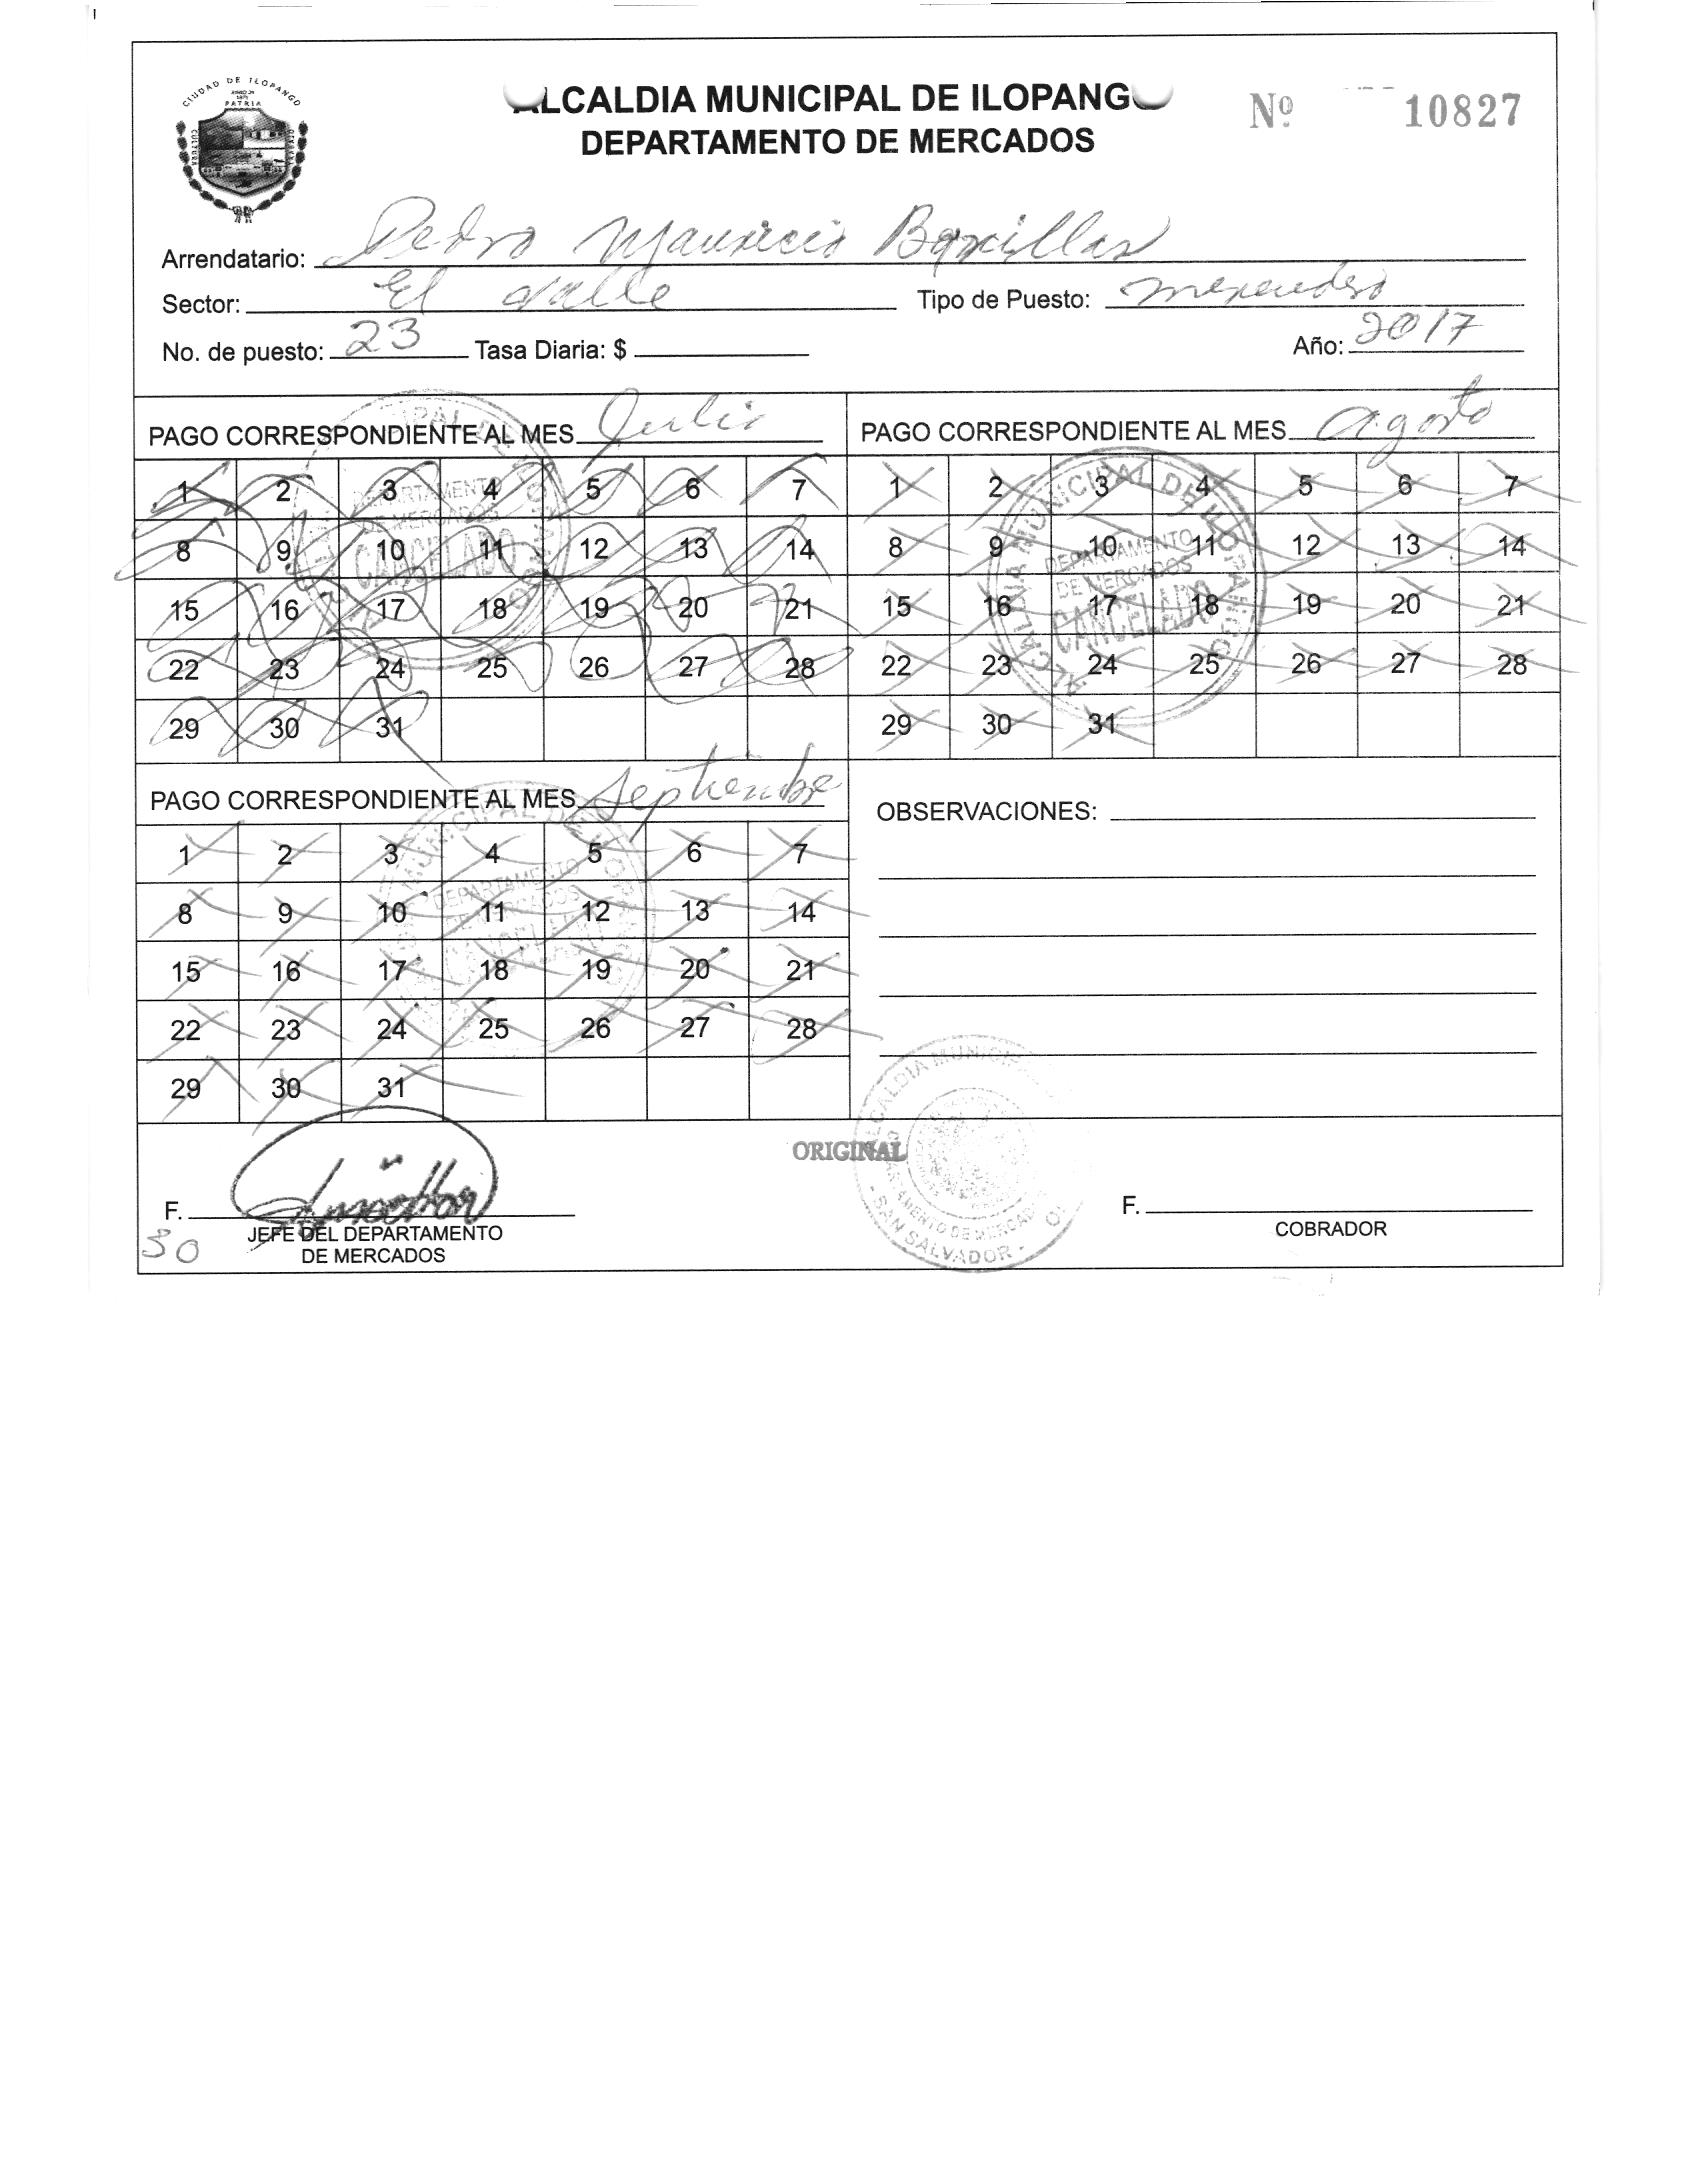 CIUDAD DE ILOPANGO
PATRIA
CULTURA
ALCALDIA MUNICIPAL DE ILOPANGO
DEPARTAMENTO DE MERCADOS
Nº 10827
Arrendatario: Pedro Mauricio
Sector: El Valle Tipo de Puesto:
No. de puesto: 23 Tasa Diaria: $ Año: 2017
PAGO CORRESPONDIENTE AL MES Julio
1 2 3 4 5 6 7
8 9 10 11 12 13 14
15 16 17 18 19 20 21
22 23 24 25 26 27 28
29 30 31
DEPARTAMENTO
DE MERCADOS
CANCELADO
PAGO CORRESPONDIENTE AL MES agosto
1 2 3 4 5 6 7
8 9 10 11 12 13 14
15 16 17 18 19 20 21
22 23 24 25 26 27 28
29 30 31
ALCALDIA MUNICIPAL DE ILOPANGO
DEPARTAMENTO
DE MERCADOS
CANCELADO
PAGO CORRESPONDIENTE AL MES Septiembre
1 2 3 4 5 6 7
8 9 10 11 12 13 14
15 16 17 18 19 20 21
22 23 24 25 26 27 28
29 30 31
MUNICIPAL DE
DEPARTAMENTO
OBSERVACIONES:
ORIGINAL
ALCALDIA MUNICIPAL
DEPARTAMENTO DE MERCADOS
- SAN SALVADOR -
F.
JEFE DEL DEPARTAMENTO
DE MERCADOS
30
F.
COBRADOR